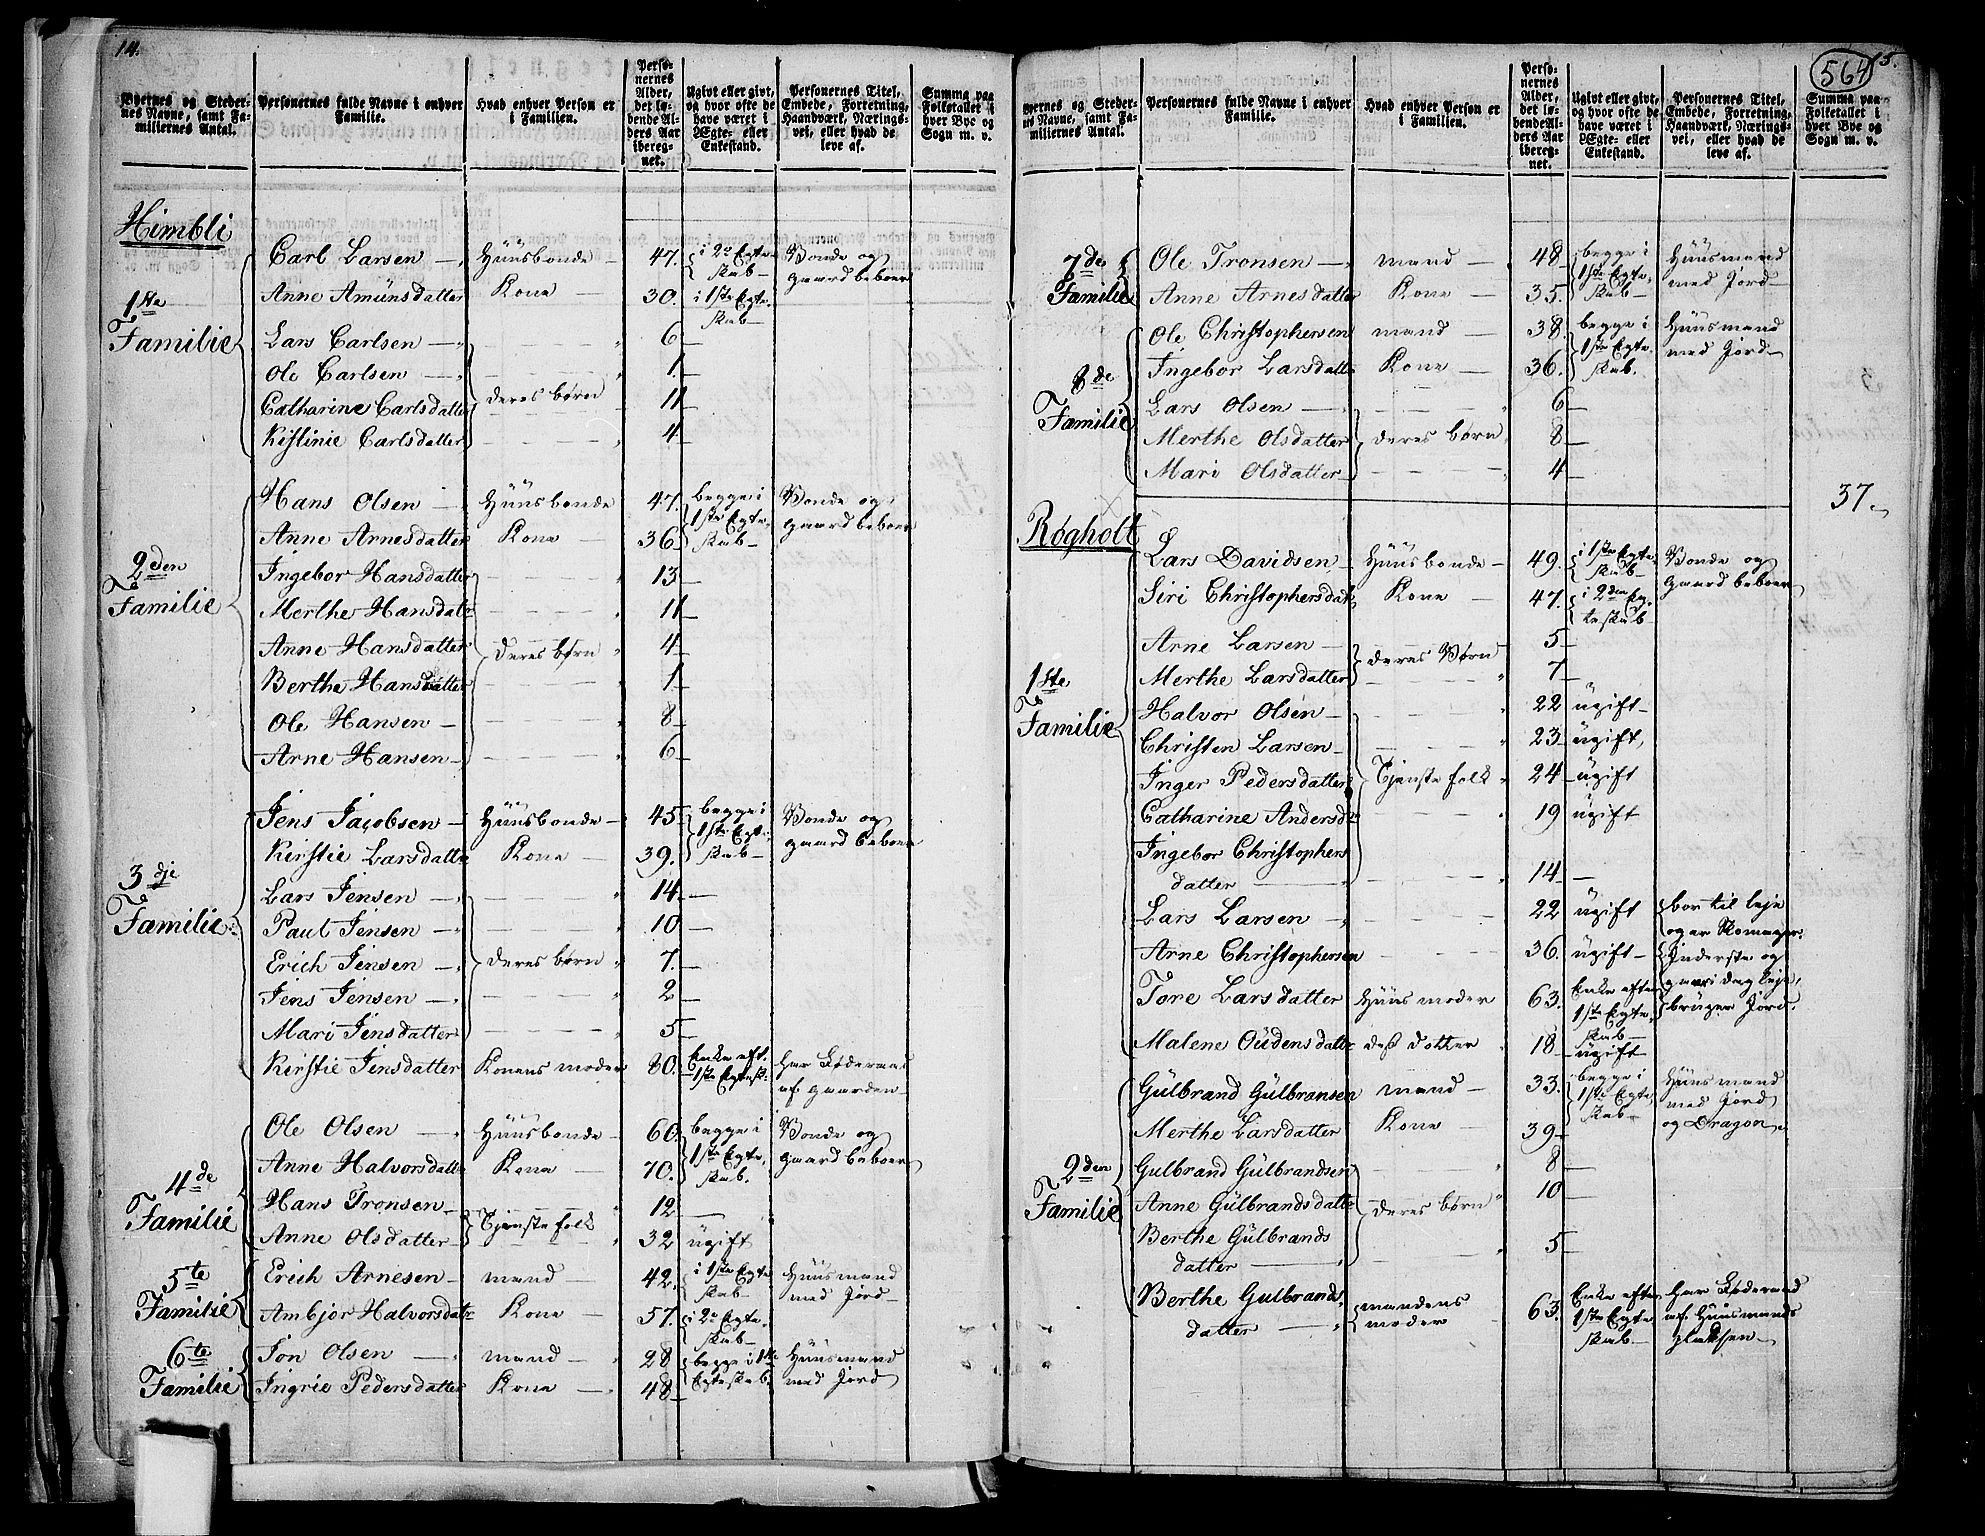 14.
Byernes og Stedernes Navne, samt Familiernes Antal. | Personernes fulde Navne i enhver Familie. | Hvad enhver Person er i Familien. | Personernes Alder, det løbende Alders Aar iberegnet. | Ugivt eller givt, og hvor ofte de have været i Ægte- eller Enkestand. | Personernes Titel, Embede, Forretning, Haandværk, Næringsvei, eller hvad de leve af. | Summa paa Folketallet i hver Bye og Sogn m. v.
Himbli
1ste Familie
Carl Larsen — | Huusbonde | 47. | i 2de Egteskab — | Bonde og gaardbeboer
Anne Amunsdatter | Kone — | 30. | i 1ste Egteskab —
Lars Carlsen — | 6 —
Ole Carlsen — | 1 —
Catharine Carlsdatter | deres børn | 11 —
Kistinie Carlsdatter | 4 —
2den Familie
Hans Olsen — | Huusbonde | 47. | begge i 1ste Egteskab — | Bonde og gaardbeboer
Anne Arnesdatter | Kone — | 36
Ingebor Hansdatter | 13 —
Merthe Hansdatr | 11 —
Anne Hansdatter | deres børn | 4 —
Berthe Hansdatter | 1 —
Ole Hansen — | 8 —
Arne Hansen — | 6 —
3dje Familie
Jens Jacobsen — | Huusbonde — | 45 | begge i 1ste Egteskab — | Bonde og gaardbeboer
Kirstie Larsdatter | Kone — | 39.
Lars Jensen — | 14 —
Paul Jensen — | 10 —
Erich Jensen — | deres børn | 7. —
Jens Jensen — | 2 —
Mari Jensdatter — | 5 —
Kirstie Jensdatter | Konens moder | 80. | Enke eft. 1ste Egtesk: | har Føderaad af gaarden —
4de Familie
Ole Olsen — | Huusbonde — | 60. | begge i 1ste Egteskab. | Bonde og gaardbeboer
Anne Halvorsdatter | Kone — | 70.
Hans Tronsen — | Tjenstefolk | 12 —
Anne Olsdatter — | 32 | ugift
5te Familie
Erich Arnesen — | mand — | 42. | i 1ste Egteskab — | Huusmand med Jord —
Ambjor Halvorsdatr | Kone — | 57. | i 2de Egteskab —
6te Familie
Jon Olsen — | mand — | 28 | begge i 1ste Egteskab. | Huusmand med Jord
Ingrie Pedersdatter | Kone — | 48 —
564
15.
Byernes og Stedernes Navne, samt Familiernes Antal. | Personernes fulde Navne i enhver Familie. | Hvad enhver Person er i Familien. | Personernes Alder, det løbende Alders Aar iberegnet. | Ugivt eller givt, og hvor ofte de have været i Ægte- eller Enkestand. | Personernes Titel, Embede, Forretning, Haandværk, Næringsvei, eller hvad de leve af. | Summa paa Folketallet i hver Bye og Sogn m. v.
7de Familie
Ole Tronsen — | mand — | 48 | begge i 1ste Egteskab — | Huusmand med Jord —
Anne Arnesdatter | Kone — | 35.
8de Familie
Ole Christophersen | mand — | 38 | begge i 1ste Egteskab. | Huusmand med Jord —
Ingebor Larsdatter | Kone — | 36.
Lars Olsen — | 6 —
Merthe Olsdatter | deres børn | 8 —
Mari Olsdatter — | 4 —
37.
Røgholt
1ste Familie
Lars Davidsen — | Huusbonde — | 49. | i 1ste Egteskab — | Bonde og gaardbeboer
Siri Christophersdatr | Kone — | 47. | i 2den Egteskab
Arne Larsen — | deres Børn | 5 —
Merthe Larsdatter | 7 —
Halvor Olsen — | 22 | ugift —
Christen Larsen — | 23 | ugift,
Inger Pedersdatter | Tjenstefolk | 24 — | ugift
Catharine Andersdr | 19 | ugift
Ingebor Christophersdatter — | 14 —
Lars Larsen — | 22 | ugift | bor til leje og er Skomager.
Arne Christophersen | 36. | ugift — | Inderste og gaar i dagleje,
Tore Larsdatter | Huusmoder | 63. | Enke efter 1ste Egteskab — | bruger Jord.
Malene Oudensdattr | deß datter | 18 | ugift
2den Familie
Gulbrand Gulbransen | mand — | 33. | begge i 1ste Egteskab — | Huusmand med Jord og Dragon.
Merthe Larsdatter | Kone — | 39 —
Gulbrand Gulbrandsen | 8 —
Anne Gulbrandsdattr | deres børn | 10 —
Berthe Gulbrandsdatter — | 5 —
Berthe Gulbrandsdatter — | mandens moder | 63. | Enke efter 1ste Egteskab — | har Føderaad af Huusmandspladsen —